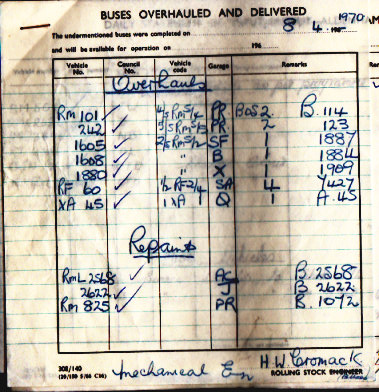 BUSES OVERHAULED AND DELIVERED
The undermentioned buses were completed on 8 4 1970
and will be available for operation on 196
Vehicle No. Council No. Vehicle code Garage Remarks
Overhauls
RM 101 ✓ PR BOS 2. B. 114
242 ✓ PR 2 123
1605 ✓ SF 1 1887
1608 ✓ " B 1 1884
1880 ✓ " X 1 1909
RF 60 ✓ 1/2 RF 2/4 SA 4 Y427
XA 45 ✓ 1 XA 1 Q 1 A.45
Repaints
RML 2568 ✓ B. 2568
2622 ✓ B. 2622
RM 825 ✓ PR B. 1072
308/140
Mechanical En H W Cromack
ROLLING STOCK ENGINEER